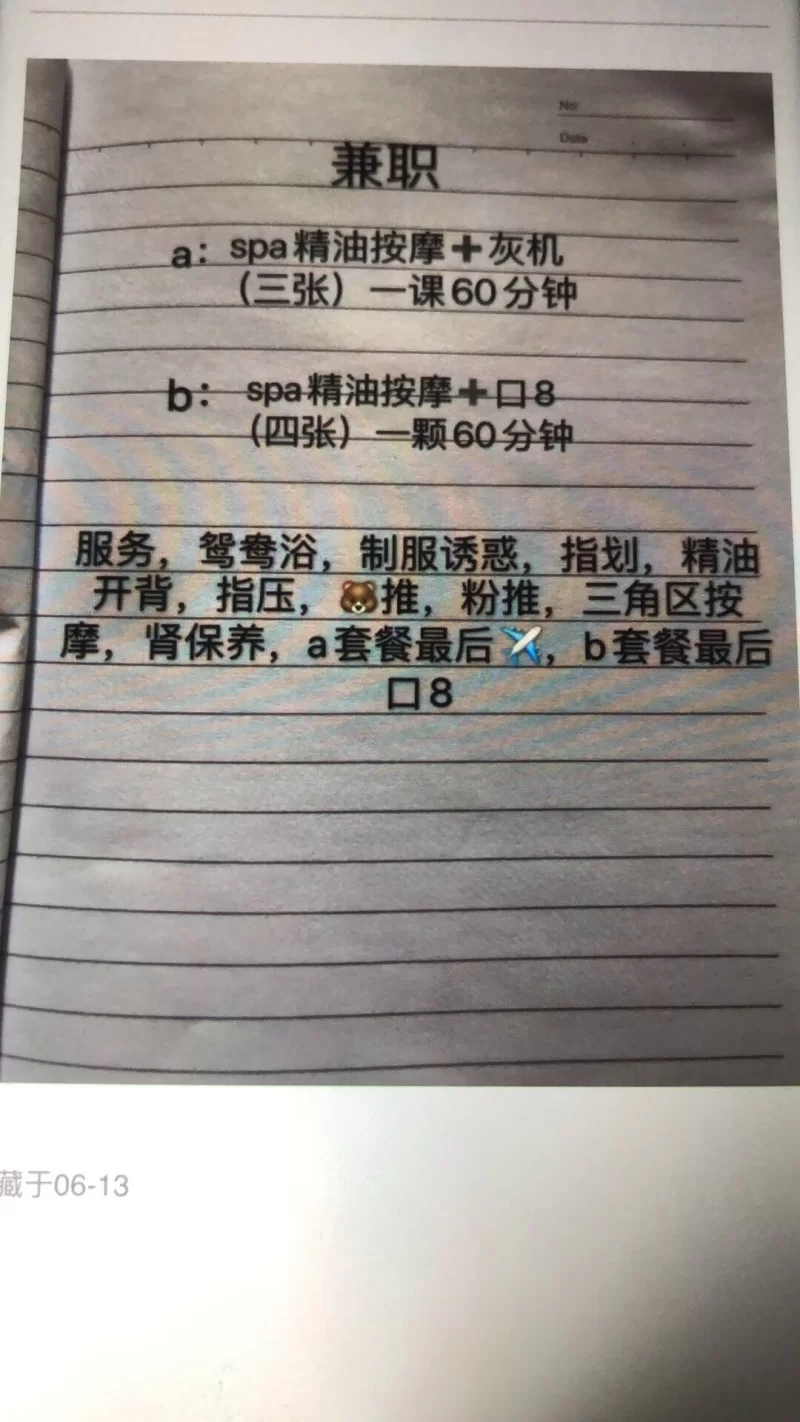 No
Date
兼职
a：spa精油按摩➕灰机
（三张）一课60分钟
b：spa精油按摩➕口8
（四张）一颗60分钟
服务，鸳鸯浴，制服诱惑，指划，精油
开背，指压，🐻推，粉推，三角区按
摩，肾保养，a套餐最后✈️，b套餐最后
口8
藏于06-13